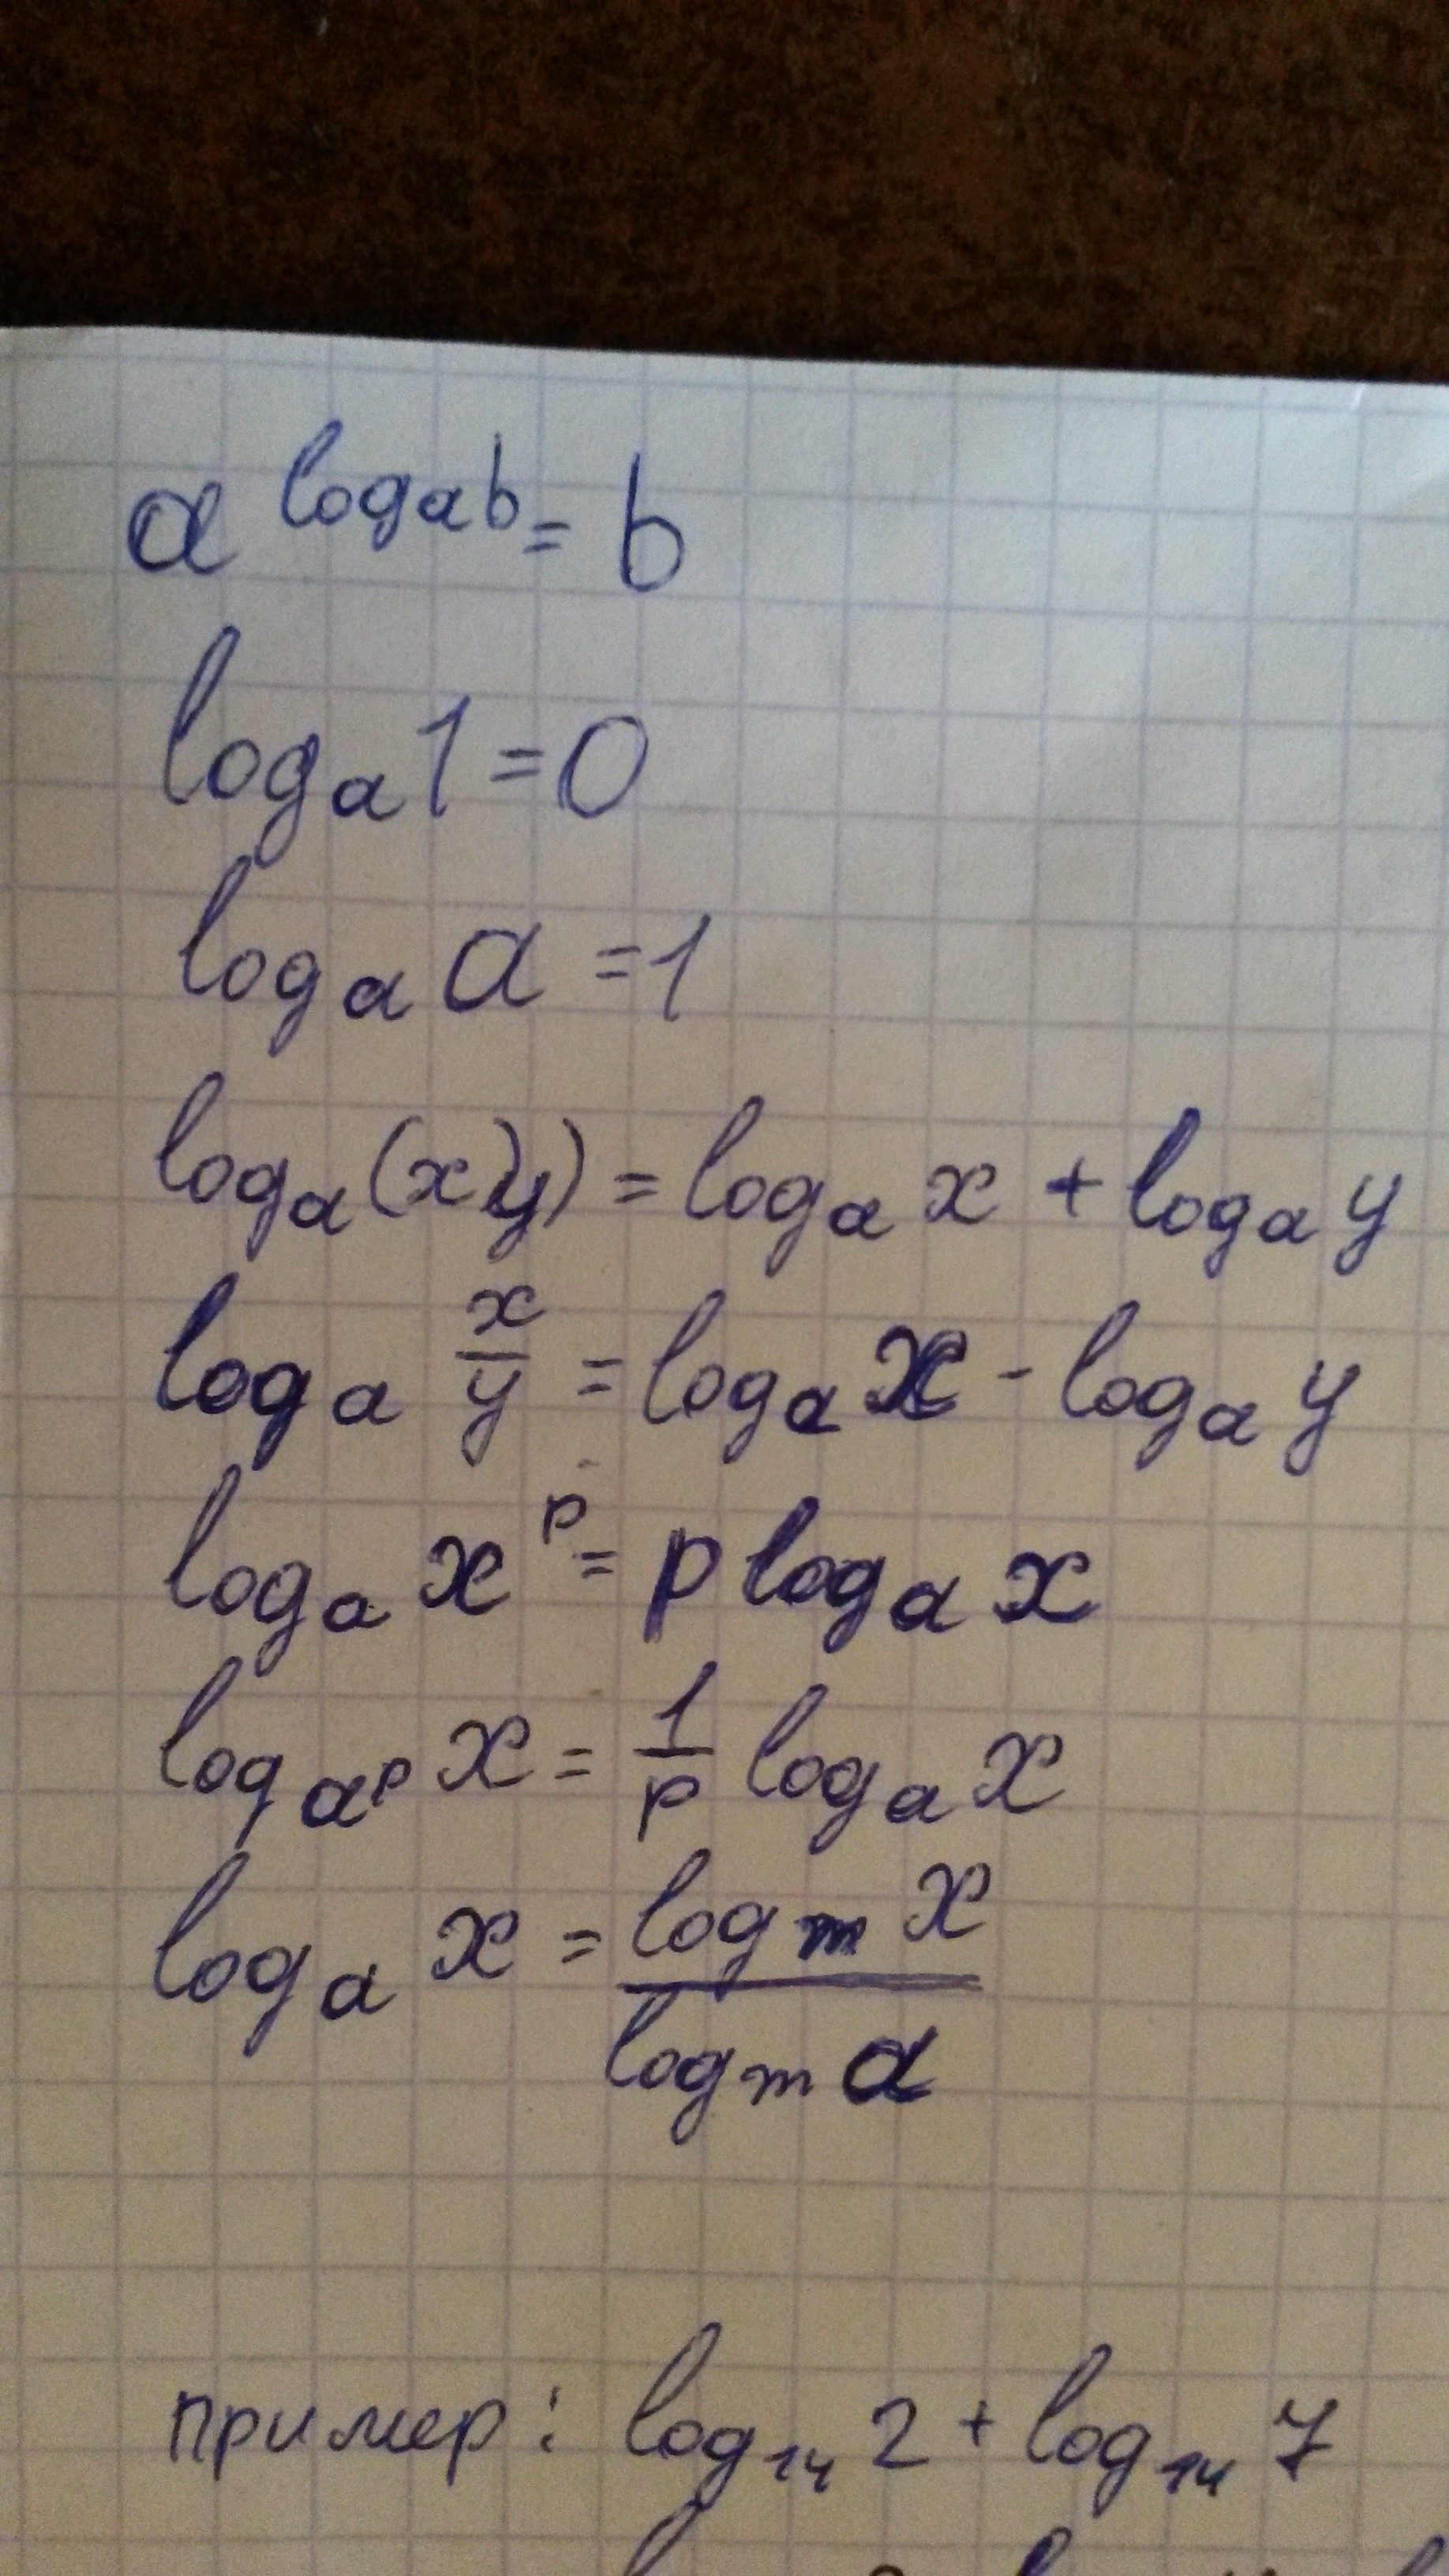 a^{log_a b} = b
log_a 1 = 0
log_a a = 1
log_a (xy) = log_a x + log_a y
log_a x/y = log_a x - log_a y
log_a x^p = p log_a x
log_{a^p} x = 1/p log_a x
log_a x = log_m x / log_m a
пример: log_14 2 + log_14 7